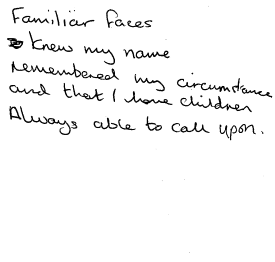 Familiar faces
Knew my name
remembered my circumstance
and that I have children
Always able to call upon.